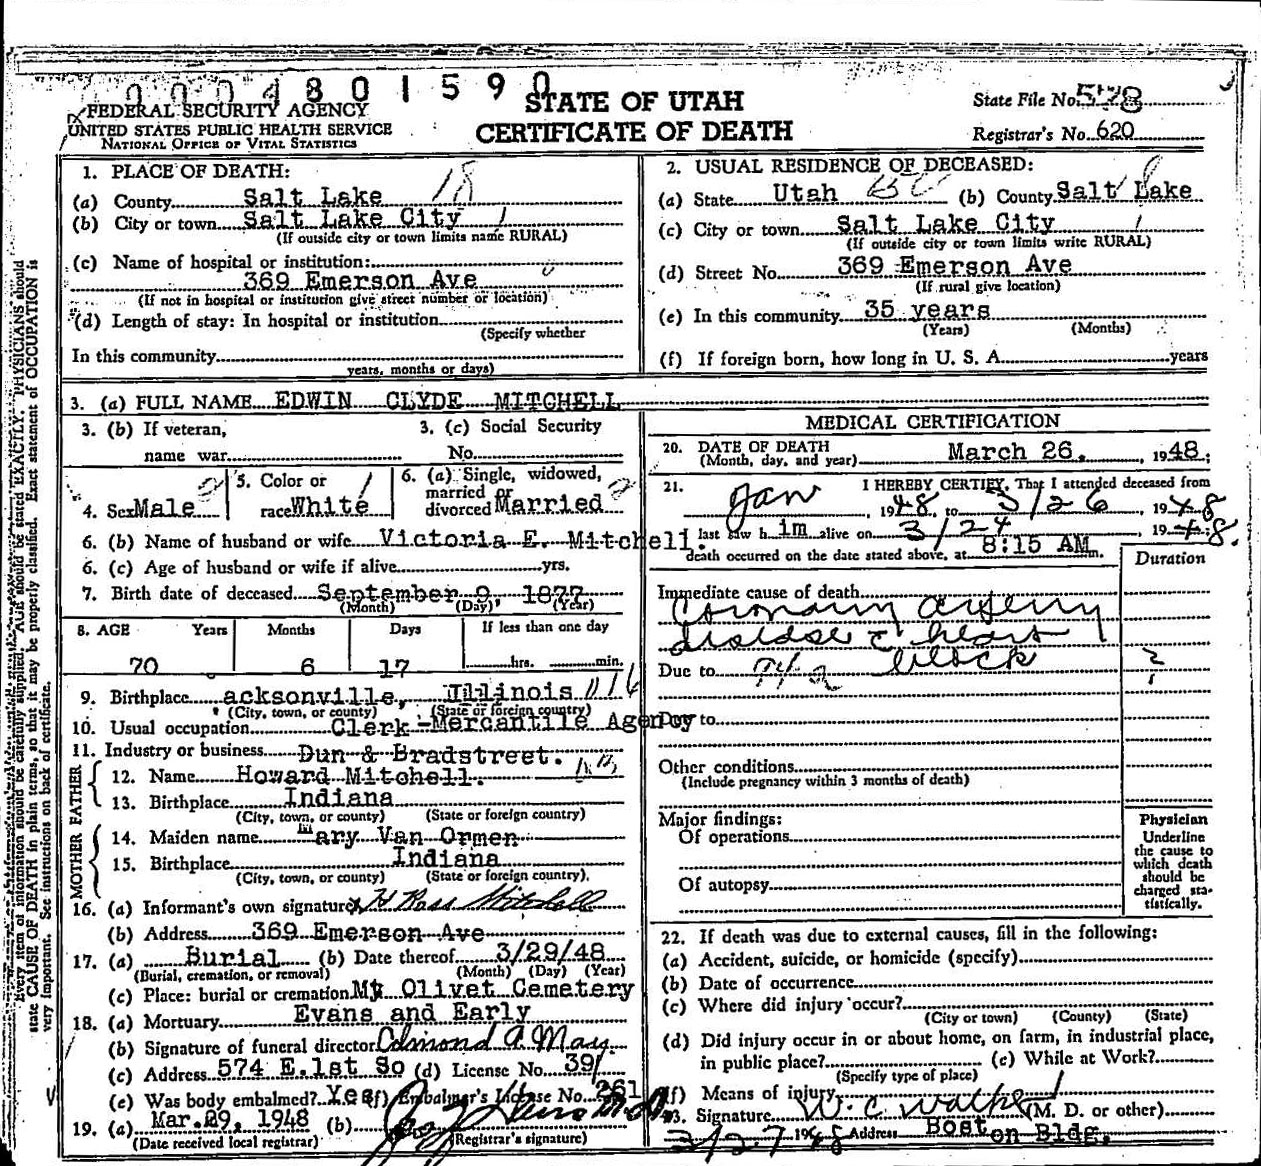 0004801590
FEDERAL SECURITY AGENCY
UNITED STATES PUBLIC HEALTH SERVICE
NATIONAL OFFICE OF VITAL STATISTICS
STATE OF UTAH
CERTIFICATE OF DEATH
State File No. 578
Registrar's No. 620
1. PLACE OF DEATH:
(a) County Salt Lake 18
(b) City or town Salt Lake City 1
(If outside city or town limits name RURAL)
(c) Name of hospital or institution:
369 Emerson Ave 0
(If not in hospital or institution give street number or location)
(d) Length of stay: In hospital or institution
(Specify whether
In this community
years, months or days)
2. USUAL RESIDENCE OF DECEASED:
(a) State Utah (b) County Salt Lake
(c) City or town Salt Lake City 1
(If outside city or town limits write RURAL)
(d) Street No. 369 Emerson Ave
(If rural give location)
(e) In this community 35 years
(Years) (Months)
(f) If foreign born, how long in U. S. A. years
3. (a) FULL NAME EDWIN CLYDE MITCHELL
3. (b) If veteran,
name war
3. (c) Social Security
No.
4. Sex Male 2
5. Color or
race White 1
6. (a) Single, widowed,
married or
divorced Married 2
6. (b) Name of husband or wife Victoria E. Mitchell.
6. (c) Age of husband or wife if alive yrs.
7. Birth date of deceased September 9, 1877
(Month) (Day) (Year)
8. AGE Years Months Days If less than one day
70 6 17 hrs. min.
9. Birthplace acksonville, Illinois
(City, town, or county) (State or foreign country)
10. Usual occupation Clerk -Mercantile Agency
11. Industry or business Dun & Bradstreet.
FATHER
12. Name Howard Mitchell.
13. Birthplace Indiana
(City, town, or county) (State or foreign country)
MOTHER
14. Maiden name Mary Van Ormen
15. Birthplace Indiana
(City, town, or county) (State or foreign country)
16. (a) Informant's own signature H Ross Mitchell
(b) Address 369 Emerson Ave
17. (a) Burial (b) Date thereof 3/29/48
(Burial, cremation, or removal) (Month) (Day) (Year)
(c) Place: burial or cremation Mt Olivet Cemetery
18. (a) Mortuary Evans and Early
(b) Signature of funeral director Edmond A. May
(c) Address 574 E.1st So (d) License No. 391
(e) Was body embalmed? Yes (f) Embalmer's License No. 261
19. (a) Mar.29, 1948 (b)
(Date received local registrar) (Registrar's signature)
MEDICAL CERTIFICATION
20. DATE OF DEATH
(Month, day, and year) March 26, , 1948;
21. I HEREBY CERTIFY, That I attended deceased from
Jan , 1948, to 3/26, 1948
I last saw h im alive on 3/24 1948.
death occurred on the date stated above, at 8:15 AM m.
Duration
Immediate cause of death
Coronary artery
disease c heart
block
Due to 94a ?
Due to
Other conditions
(Include pregnancy within 3 months of death)
Major findings:
Of operations
Of autopsy
Physician
Underline
the cause to
which death
should be
charged sta-
tistically.
22. If death was due to external causes, fill in the following:
(a) Accident, suicide, or homicide (specify)
(b) Date of occurrence
(c) Where did injury occur?
(City or town) (County) (State)
(d) Did injury occur in or about home, on farm, in industrial place,
in public place? (e) While at Work?
(Specify type of place)
(f) Means of injury
23. Signature W. C. Walker (M. D. or other)
3/27 1948 Address Boston Bldg.
Every item of information should be carefully supplied. AGE should be stated EXACTLY. PHYSICIANS should
state CAUSE OF DEATH in plain terms, so that it may be properly classified. Exact statement of OCCUPATION is
very important. See instructions on back of certificate.